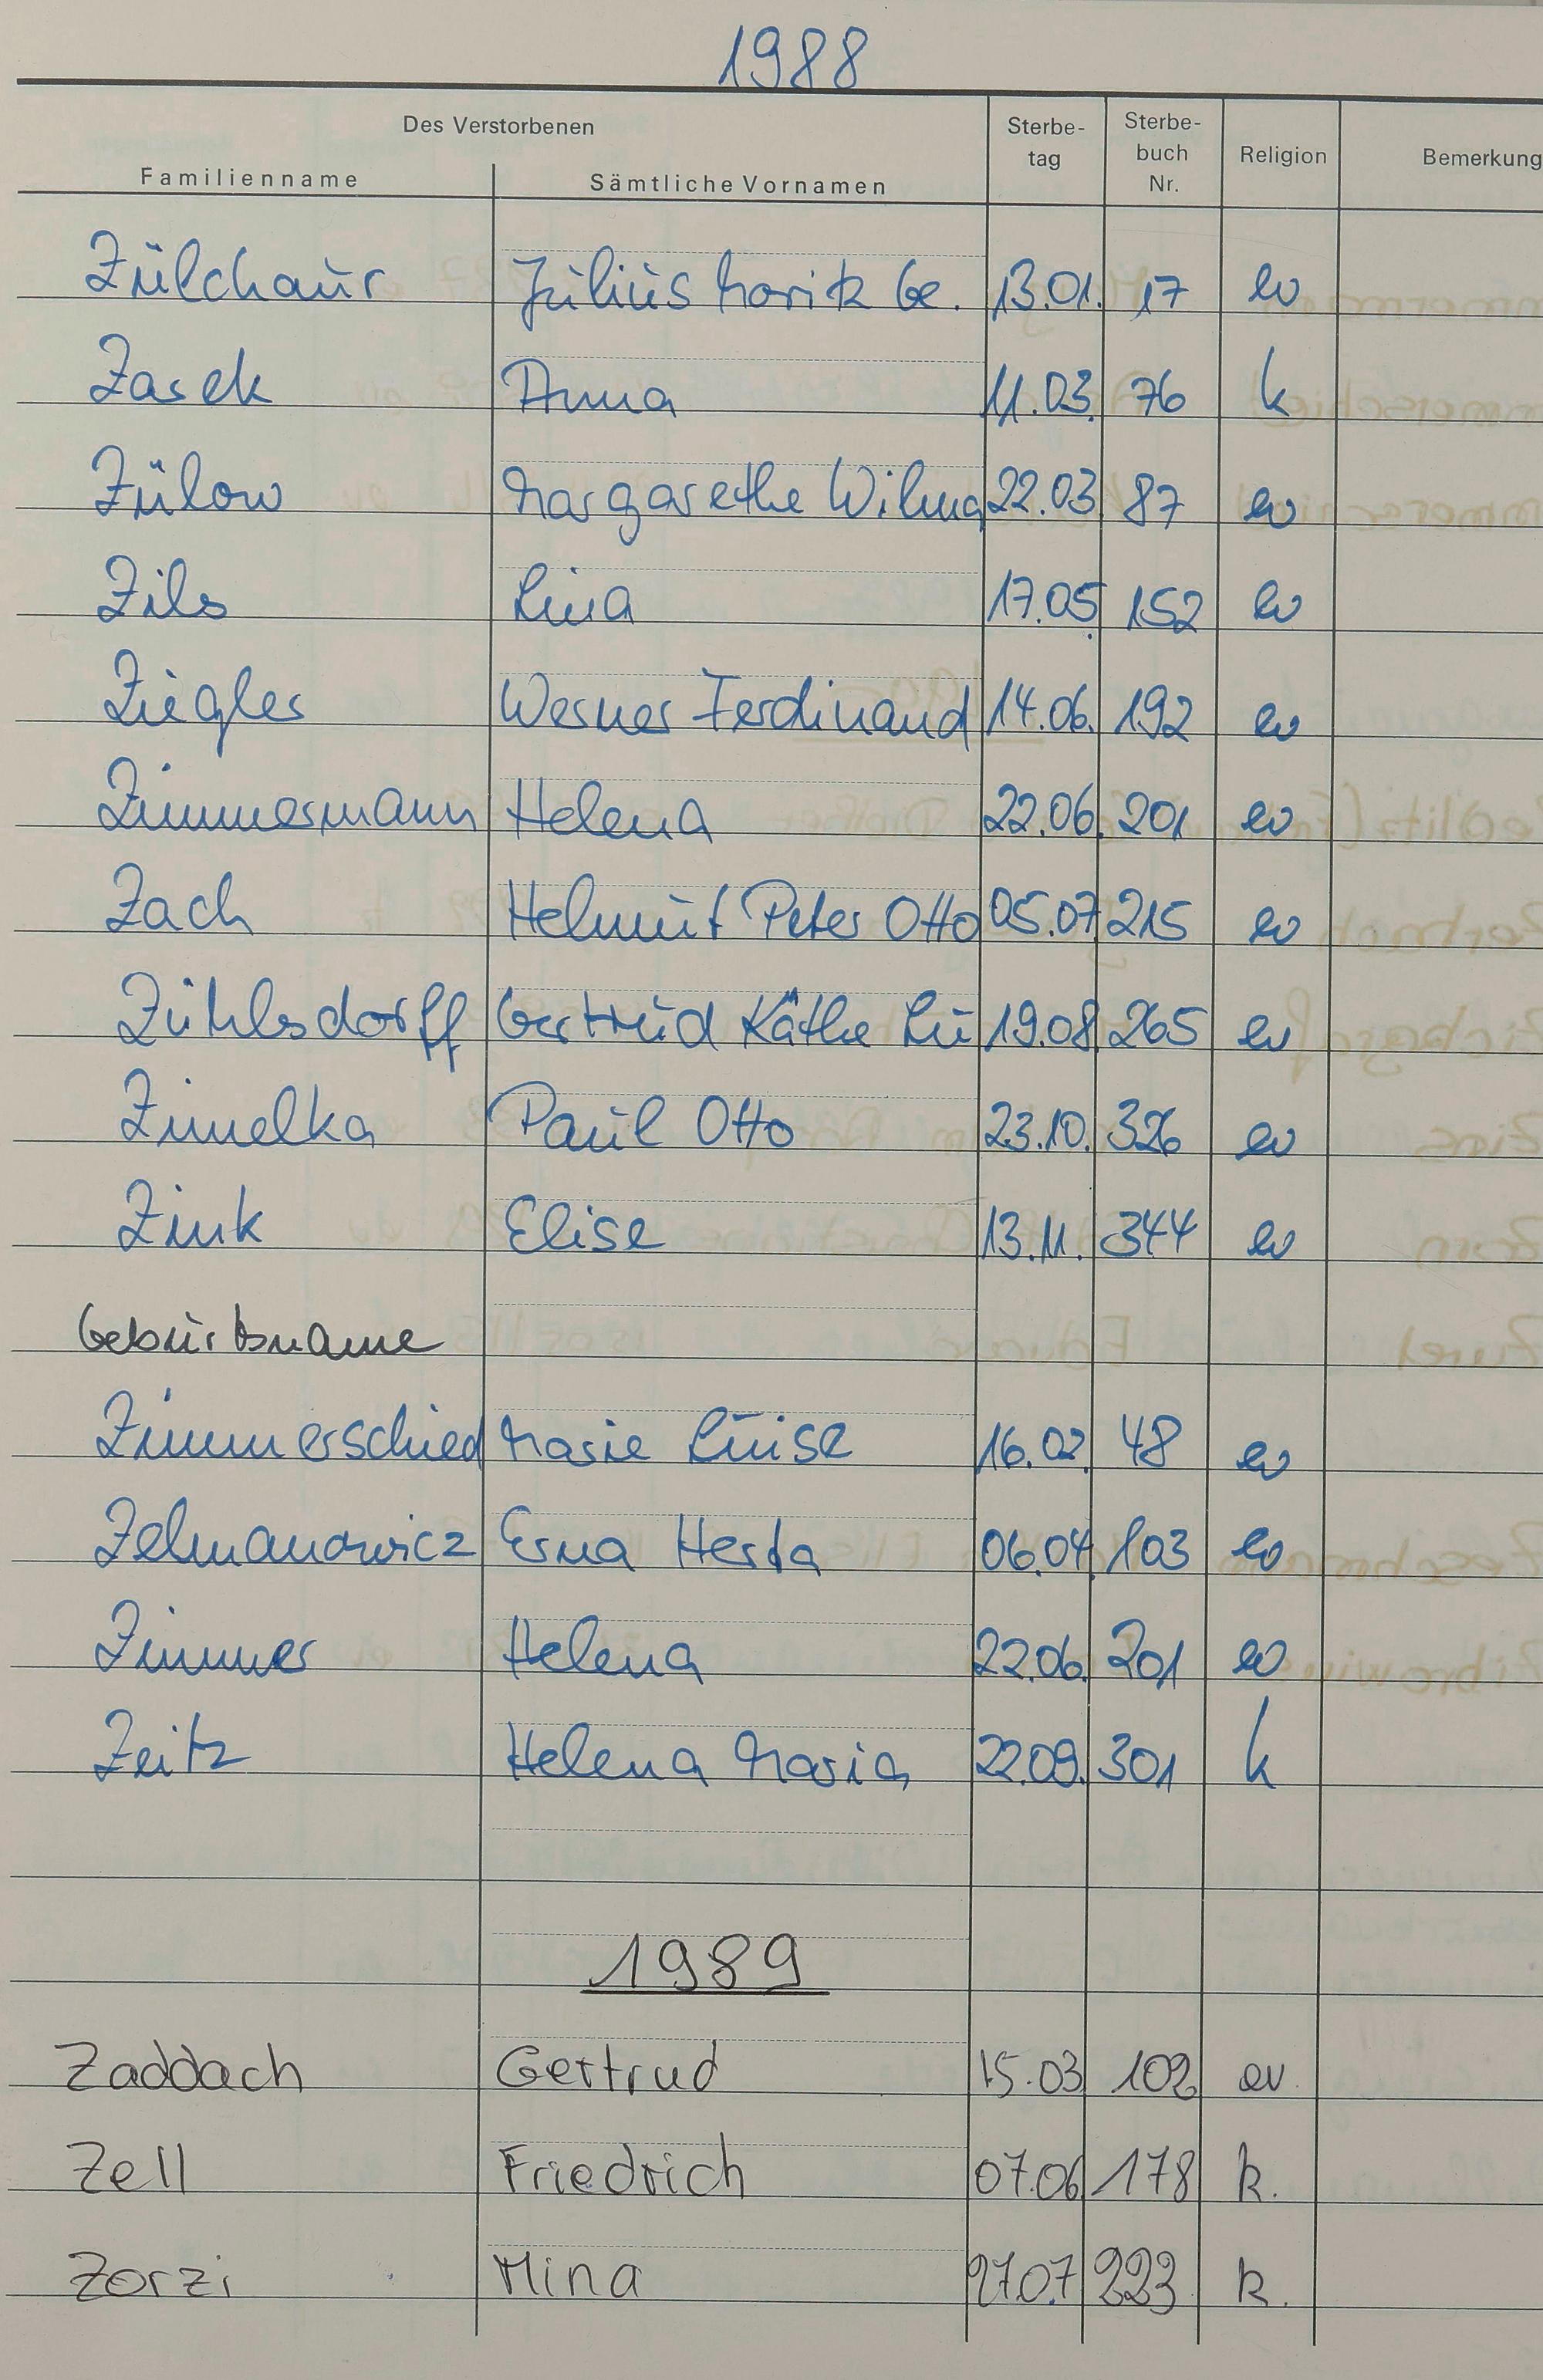 1988
Des Verstorbenen
Familienname Sämtliche Vornamen Sterbe-tag Sterbe-buch Nr. Religion Bemerkung
Zülchaur Julius Moritz Ge. 13.01. 17 ev
Zasek Anna 11.03. 76 k
Zülow Margarethe Wilma 22.03. 87 ev
Zils Lina 17.05. 152 ev
Ziegler Werner Ferdinand 14.06. 192 ev
Zimmermann Helena 22.06. 201 ev
Zach Helmut Peter Otto 05.07. 215 ev
Zühlsdorff Gertrud Käthe Lu 19.08. 265 ev
Zimelka Paul Otto 23.10. 326 ev
Zink Elise 13.11. 344 ev
Geburtsname
Zimmerschied Marie Luise 16.02. 48 ev
Zelmanowicz Erna Herta 06.04. 103 ev
Zimmer Helena 22.06. 201 ev
Zeitz Helena Maria 22.09. 301 k
1989
Zaddach Gertrud 15.03 102 ev.
Zell Friedrich 07.06 178 k.
Zorzi Mina 27.07. 223 k.